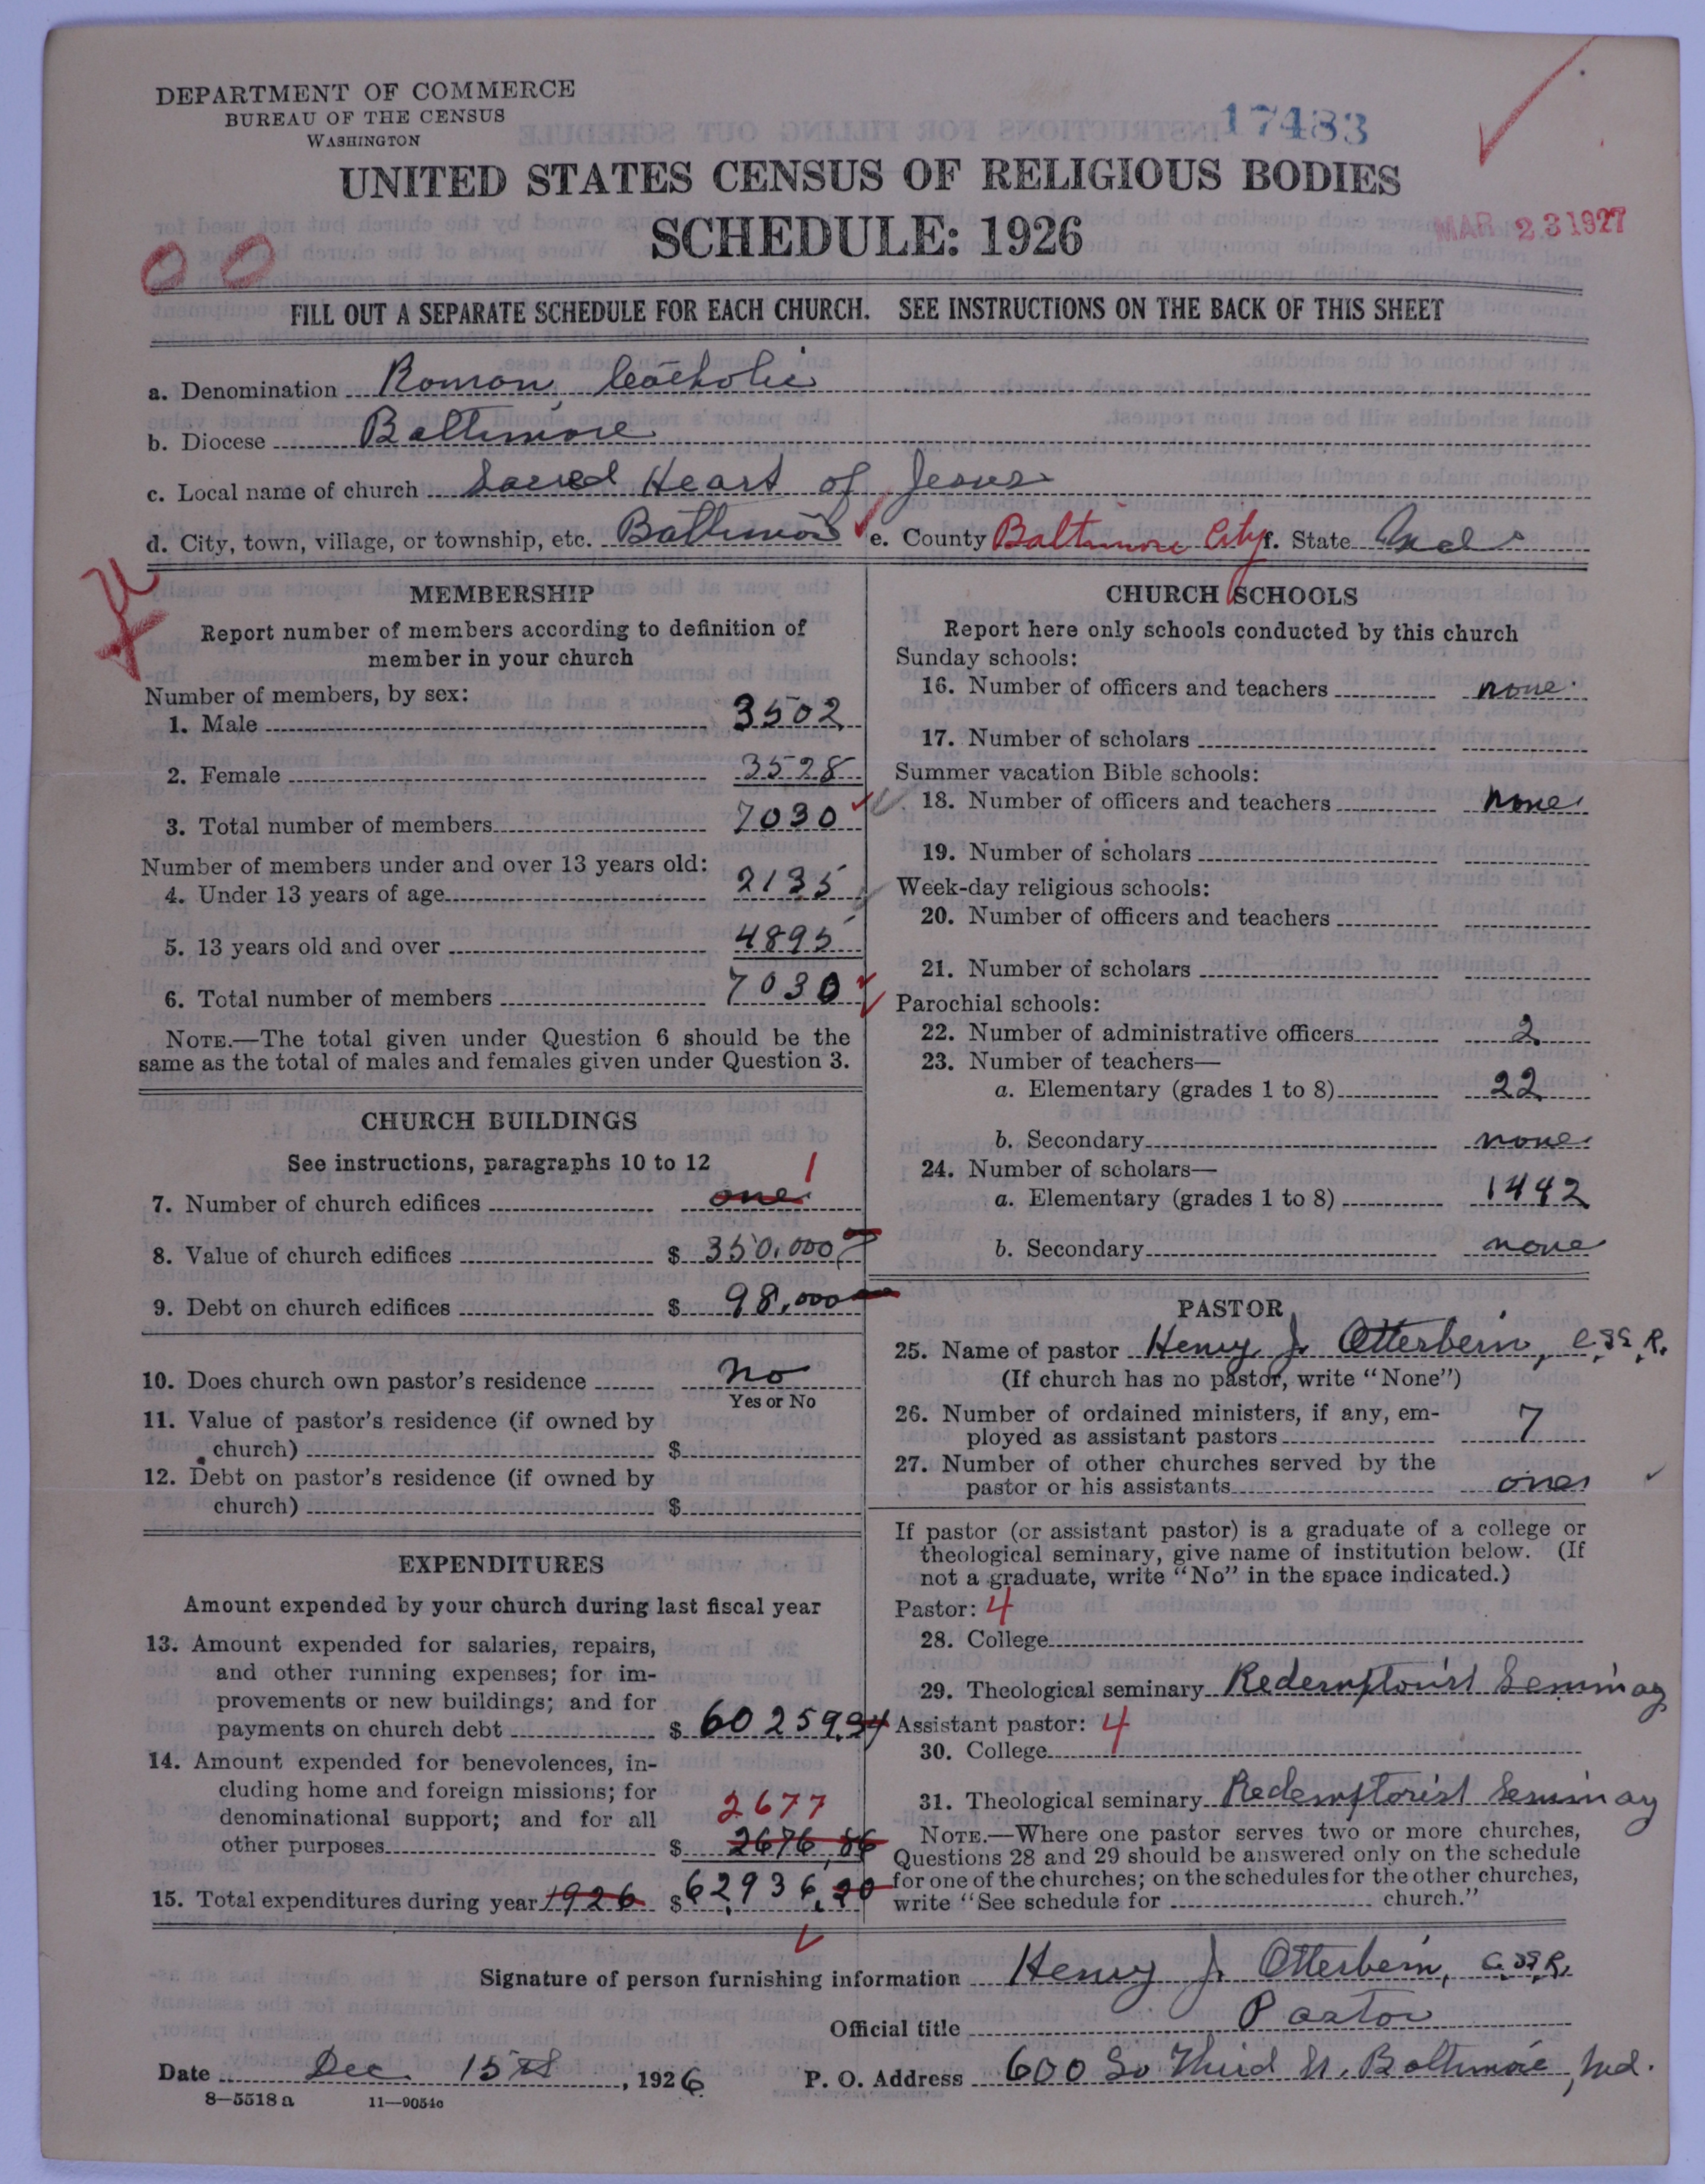 DEPARTMENT OF COMMERCE
BUREAU OF THE CENSUS
WASHINGTON
17483
UNITED STATES CENSUS OF RELIGIOUS BODIES
SCHEDULE: 1926
MAR 23 1927
00
FILL OUT A SEPARATE SCHEDULE FOR EACH CHURCH. SEE INSTRUCTIONS ON THE BACK OF THIS SHEET
a. Denomination Roman Catholic
b. Diocese Baltimore
c. Local name of church Sacred Heart of Jesus
d. City, town, village, or township, etc. Baltimore e. County Baltimore City f. State Md
MEMBERSHIP
Report number of members according to definition of
member in your church
Number of members, by sex:
1. Male 3502
2. Female 3528
3. Total number of members 7030
Number of members under and over 13 years old:
4. Under 13 years of age 2135
5. 13 years old and over 4895
6. Total number of members 7030
NOTE.—The total given under Question 6 should be the
same as the total of males and females given under Question 3.
CHURCH BUILDINGS
See instructions, paragraphs 10 to 12
7. Number of church edifices one 1
8. Value of church edifices $ 350,000
9. Debt on church edifices $ 98,000
10. Does church own pastor's residence No
Yes or No
11. Value of pastor's residence (if owned by
church) $
12. Debt on pastor's residence (if owned by
church) $
EXPENDITURES
Amount expended by your church during last fiscal year
13. Amount expended for salaries, repairs,
and other running expenses; for im-
provements or new buildings; and for
payments on church debt $ 60259.34
14. Amount expended for benevolences, in-
cluding home and foreign missions; for
denominational support; and for all 2677
other purposes $ 2676,86
15. Total expenditures during year 1926 $ 62,936,20
CHURCH SCHOOLS
Report here only schools conducted by this church
Sunday schools:
16. Number of officers and teachers none
17. Number of scholars
Summer vacation Bible schools:
18. Number of officers and teachers none
19. Number of scholars
Week-day religious schools:
20. Number of officers and teachers
21. Number of scholars
Parochial schools:
22. Number of administrative officers 2
23. Number of teachers—
a. Elementary (grades 1 to 8) 22
b. Secondary none
24. Number of scholars—
a. Elementary (grades 1 to 8) 1442
b. Secondary none
PASTOR
25. Name of pastor Henry J. Otterbein, C.SS.R.
(If church has no pastor, write "None")
26. Number of ordained ministers, if any, em-
ployed as assistant pastors 7
27. Number of other churches served by the
pastor or his assistants one
If pastor (or assistant pastor) is a graduate of a college or
theological seminary, give name of institution below. (If
not a graduate, write "No" in the space indicated.)
Pastor: 4
28. College
29. Theological seminary Redemptorist Seminay
Assistant pastor: 4
30. College
31. Theological seminary Redemptorist Seminay
NOTE.—Where one pastor serves two or more churches,
Questions 28 and 29 should be answered only on the schedule
for one of the churches; on the schedules for the other churches,
write "See schedule for church."
Signature of person furnishing information Henry J. Otterbein, C.SS.R.
Official title Pastor
Date Dec. 15th, 1926 P. O. Address 600 So Third St. Baltimore, Md.
8—5518 a 11—9054c